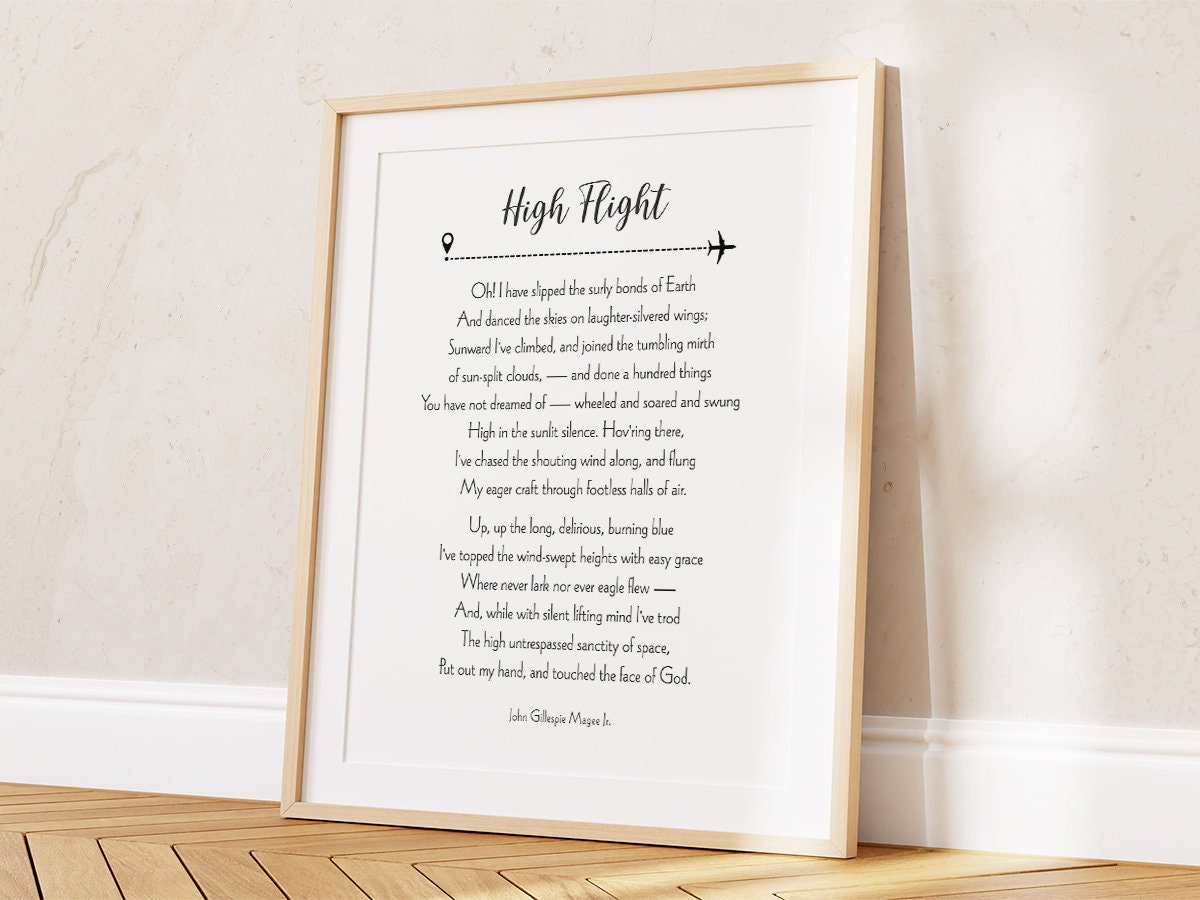 High Flight
Oh! I have slipped the surly bonds of Earth
And danced the skies on laughter-silvered wings;
Sunward I've climbed, and joined the tumbling mirth
of sun-split clouds, — and done a hundred things
You have not dreamed of — wheeled and soared and swung
High in the sunlit silence. Hov'ring there,
I've chased the shouting wind along, and flung
My eager craft through footless halls of air.
Up, up the long, delirious, burning blue
I've topped the wind-swept heights with easy grace
Where never lark nor ever eagle flew —
And, while with silent lifting mind I've trod
The high untrespassed sanctity of space,
Put out my hand, and touched the face of God.
John Gillespie Magee Jr.